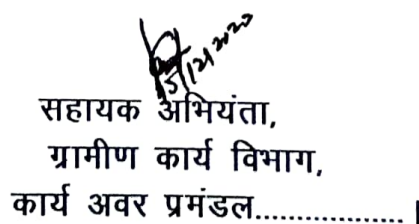 5/12/2020
सहायक अभियंता,
ग्रामीण कार्य विभाग,
कार्य अवर प्रमंडल..................